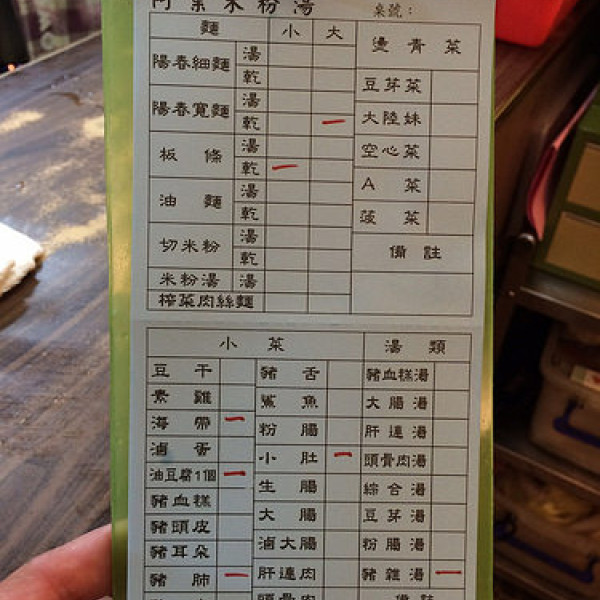 米粉湯
桌號：
麵 小 大 燙青菜
陽春細麵 湯
乾
豆芽菜
陽春寬麵 湯
乾 一
大陸妹
板條 湯
乾 一
空心菜
油麵 湯
乾
A菜
菠菜
切米粉 湯
乾
備註
米粉湯 湯
榨菜肉絲麵
小菜 湯類
豆干 豬舌 豬血糕湯
素雞 鯊魚 大腸湯
海帶 一 粉腸 肝連湯
滷蛋 小肚 一 頭骨肉湯
油豆腐1個 一 生腸 綜合湯
豬血糕 大腸 豆芽湯
豬頭皮 滷大腸 粉腸湯
豬耳朵 肝連肉 豬雜湯 一
豬肺 一 頭骨肉 備註